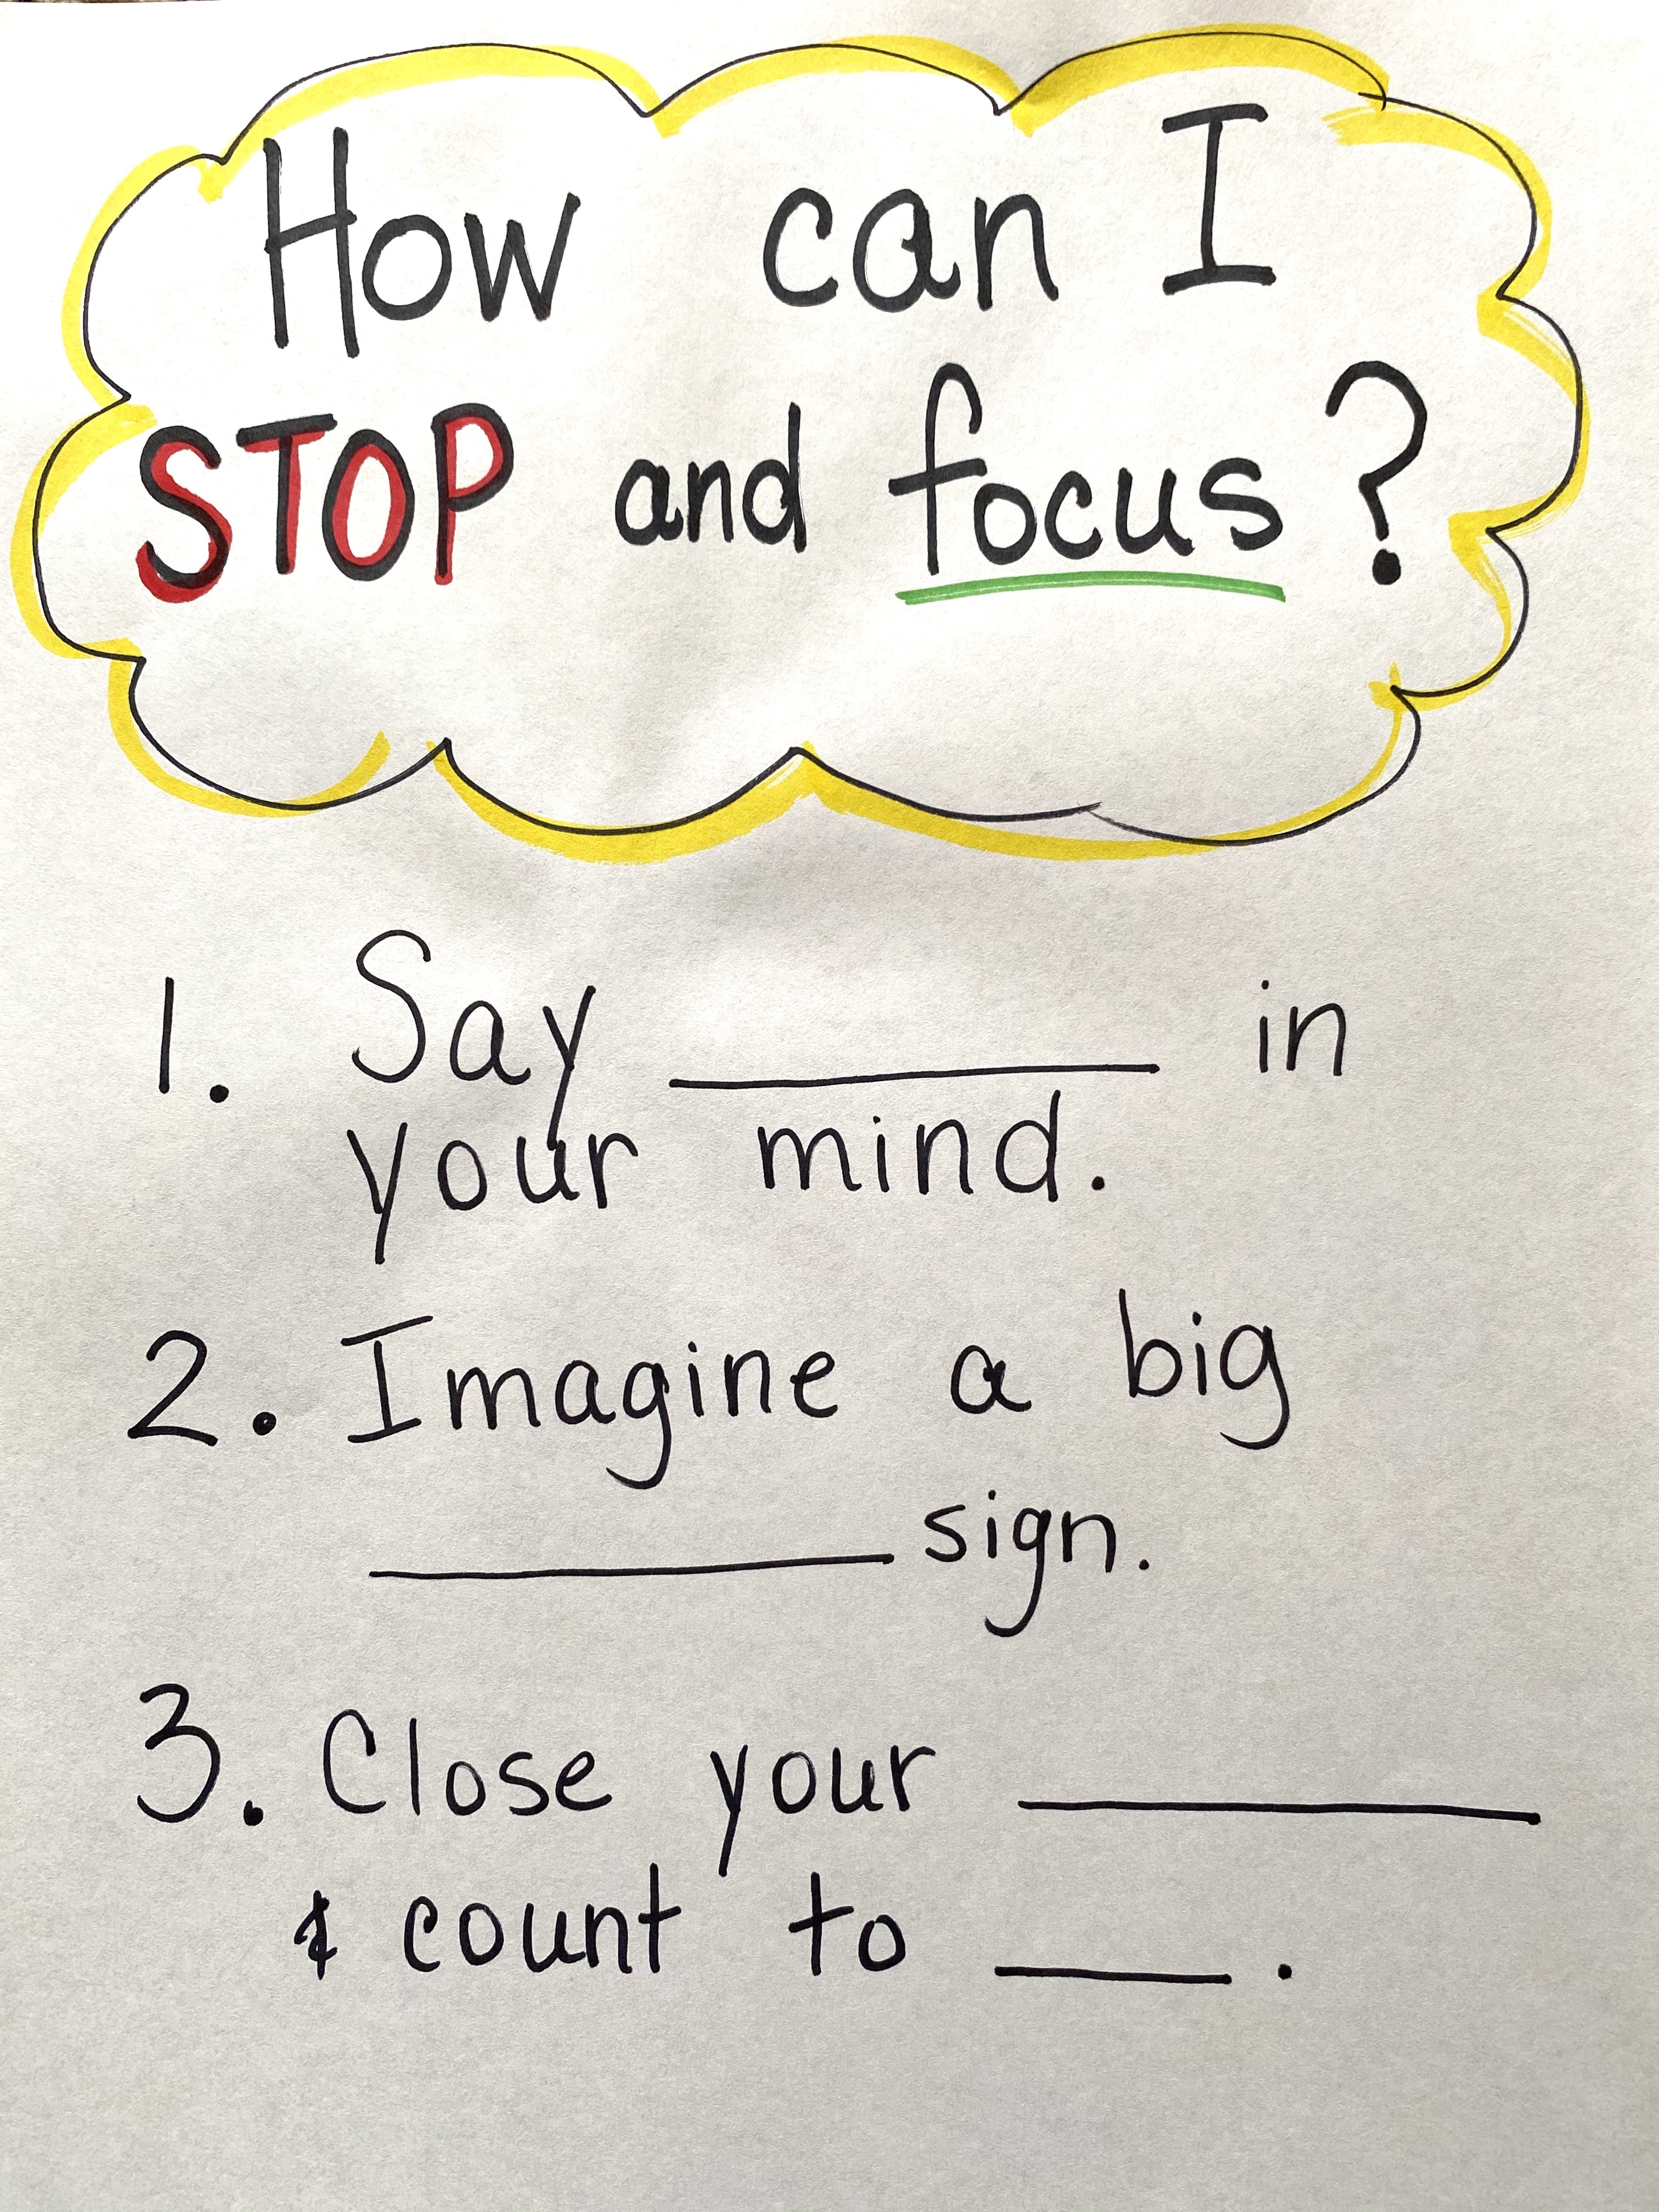 How can I
STOP and focus?
1. Say __________ in
your mind.
2. Imagine a big
__________ sign.
3. Close your __________
& count to _____.